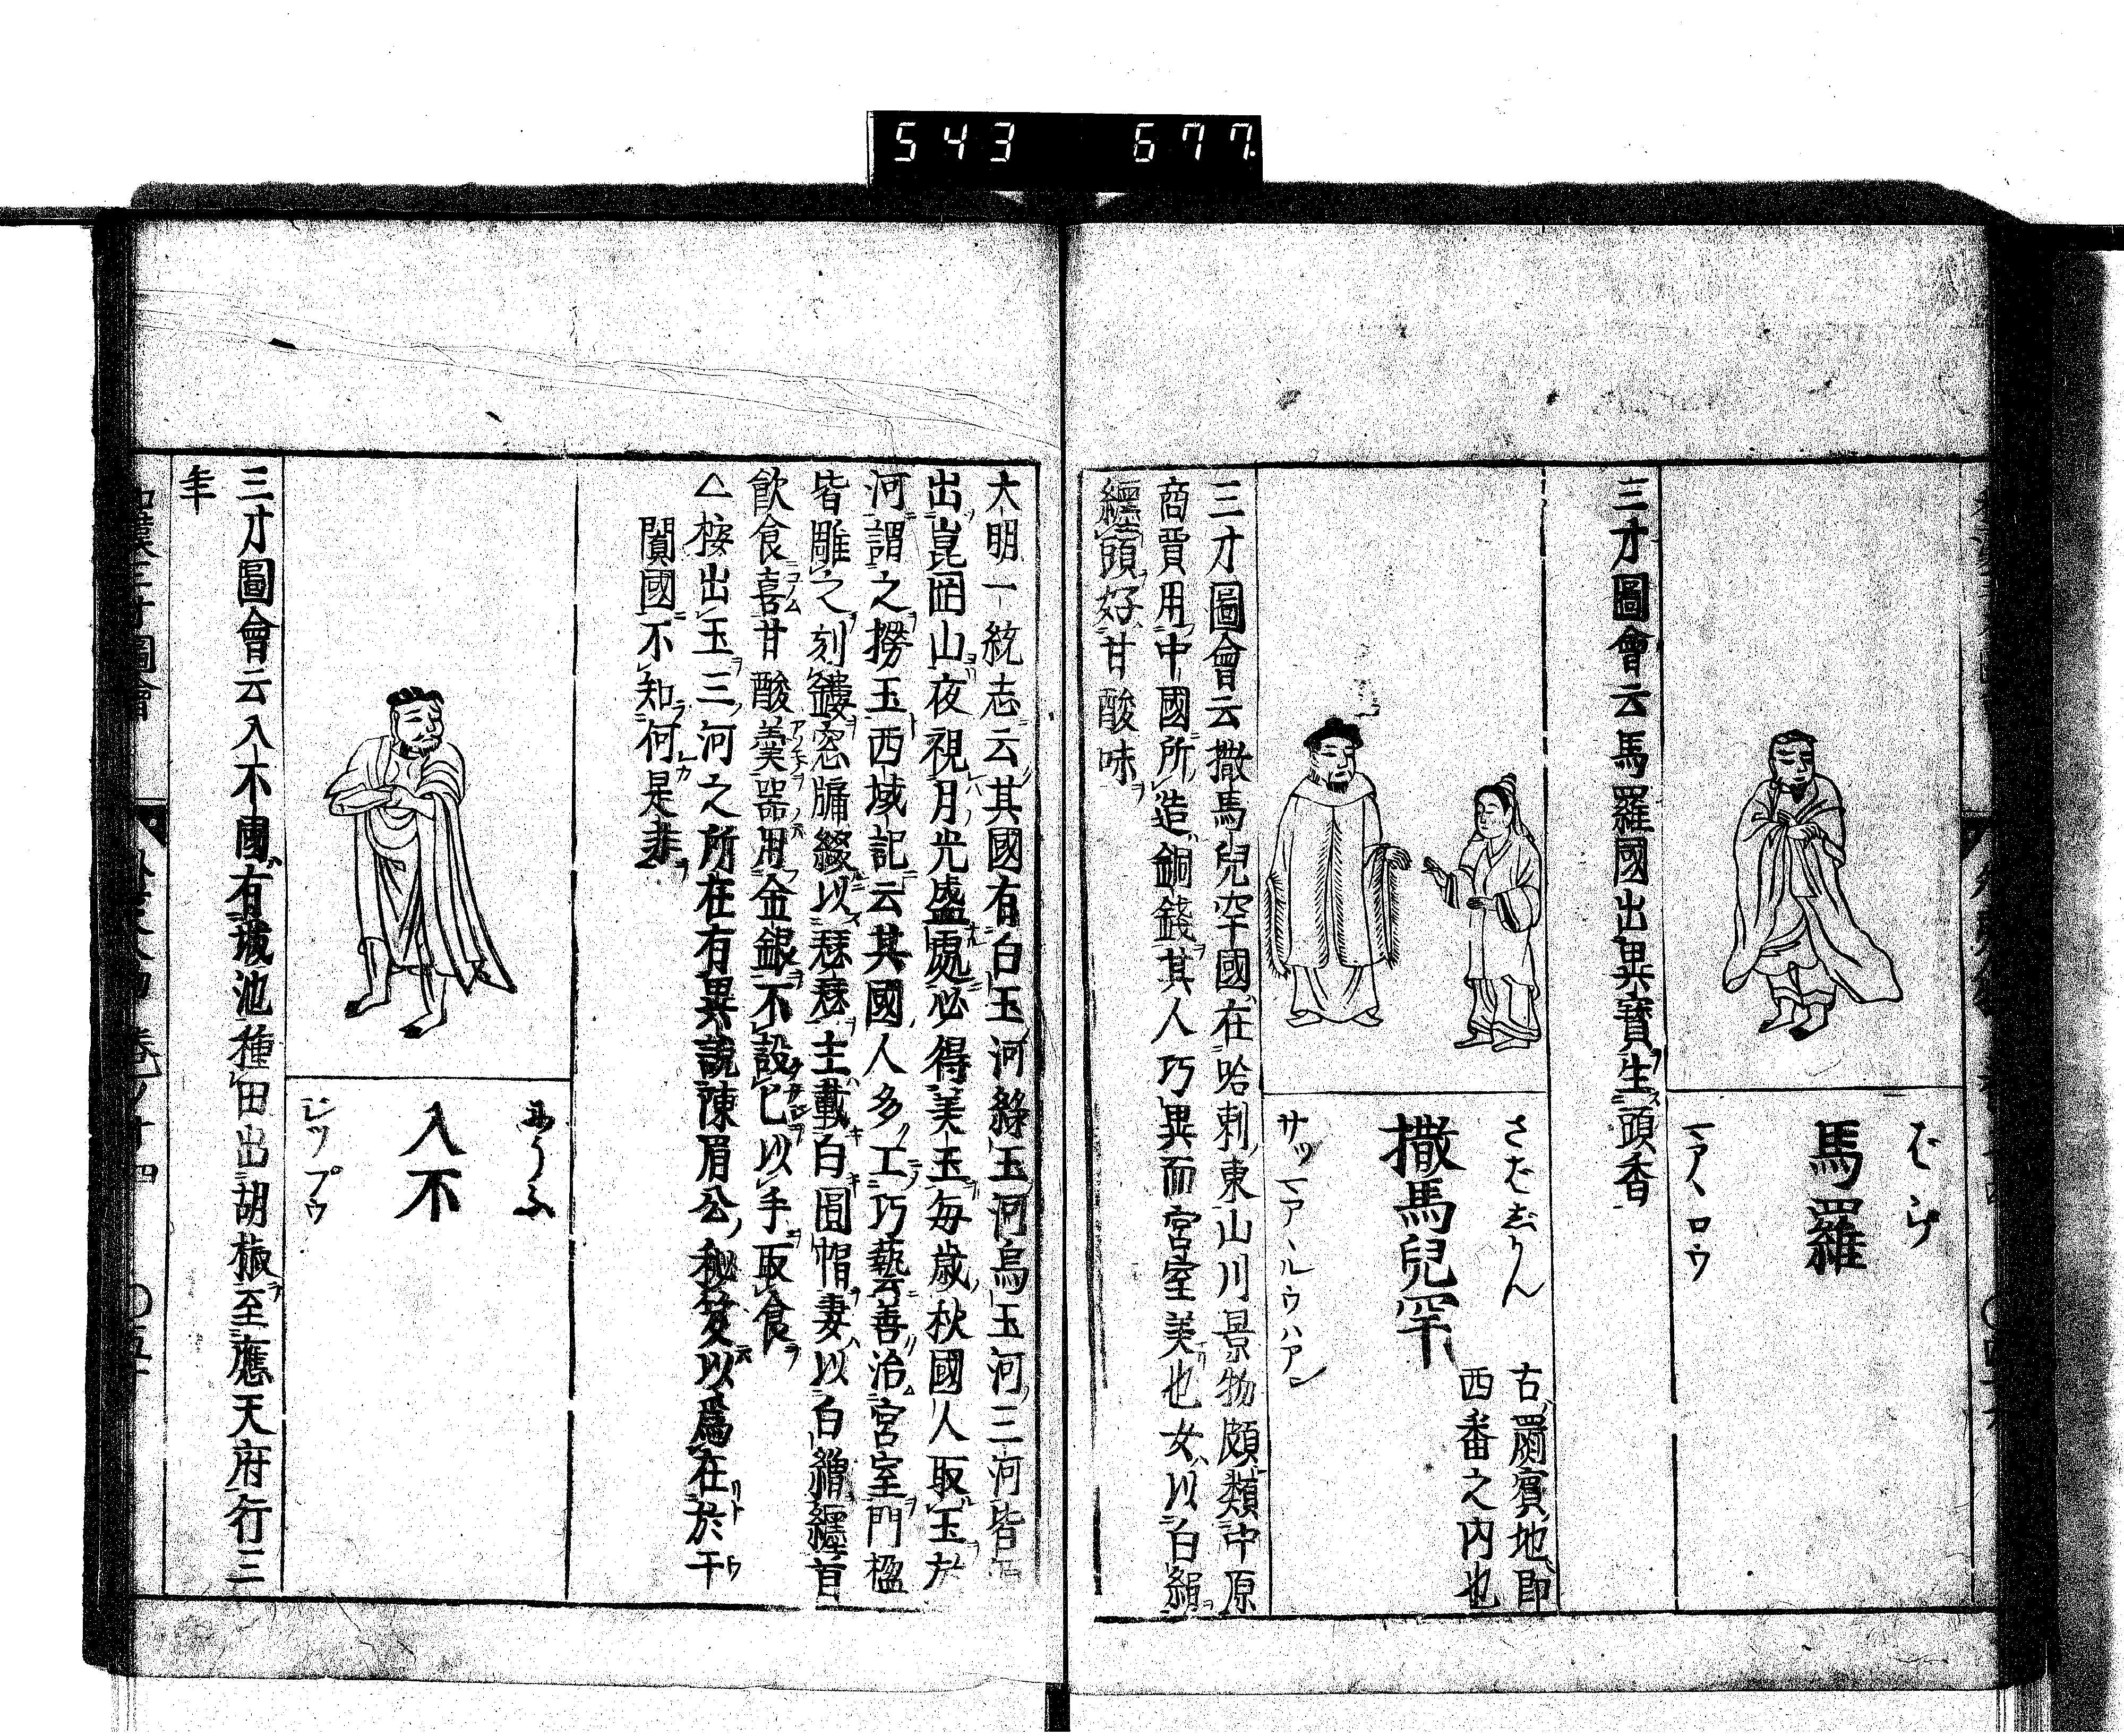 543 677
ばら
馬羅
マアヽロウ
三才圖會云馬羅國出異寶生頭香
さばじかん
撒馬兒罕
古罽賓地即
西番之内也
サツマアヽルウハアン
三才圖會云撒馬兒罕國在哈剌東山川景物頗類中原
商賈用中國所造銅錢其人巧異而宮室美也女以白繒
纒頭好甘酸味
大明一統志云其國有白玉河綠玉河烏玉河三河皆
出崑岡山夜視月光盛處必得美玉每歳秋國人取玉於
河謂之撈玉西域記云其國人多工巧藝云善治宮室門楹
皆雕之刻鏤窓牗綴以瑟瑟主戴白圓帽妻以白繒纒首
飲食喜甘酸羮器用金銀不設匕以手取食
△按出玉三河之所在有異說陳眉公秘笈以爲在於于
闐國不知何是非
入不
ジツプウ
三才圖會云入不國有城池種田出胡椒至應天府行三
年